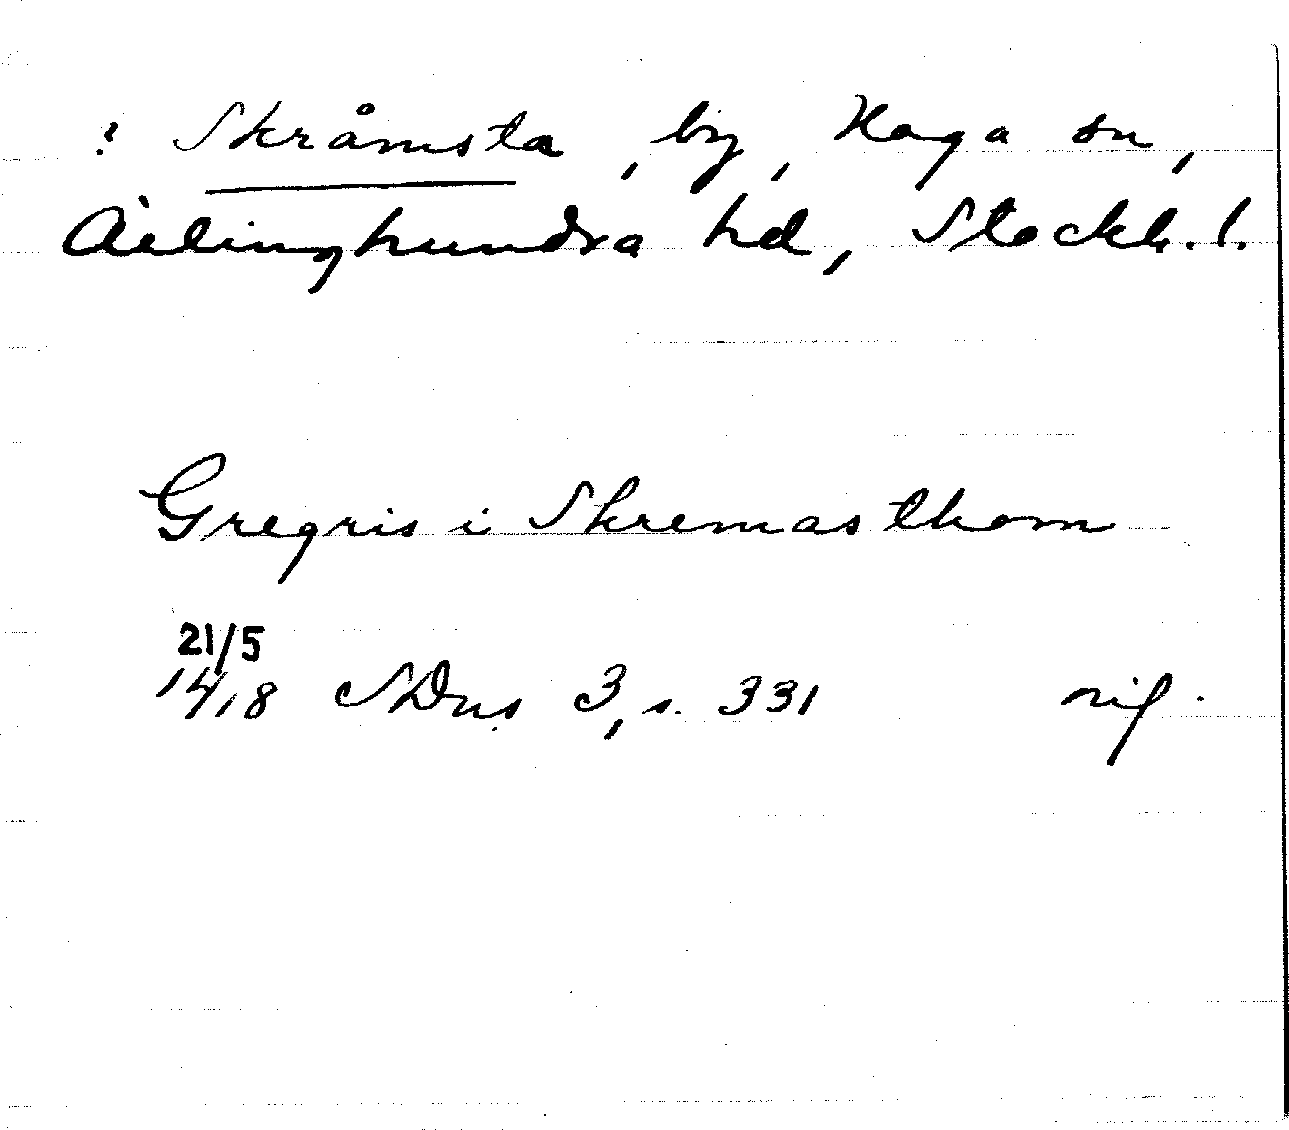 ? Skråmsta, by, Haga sn,
Ærlinghundra hd, Stockh. l.
Gregris i Skremasthom
21/5
1418 SDns 3, s. 331